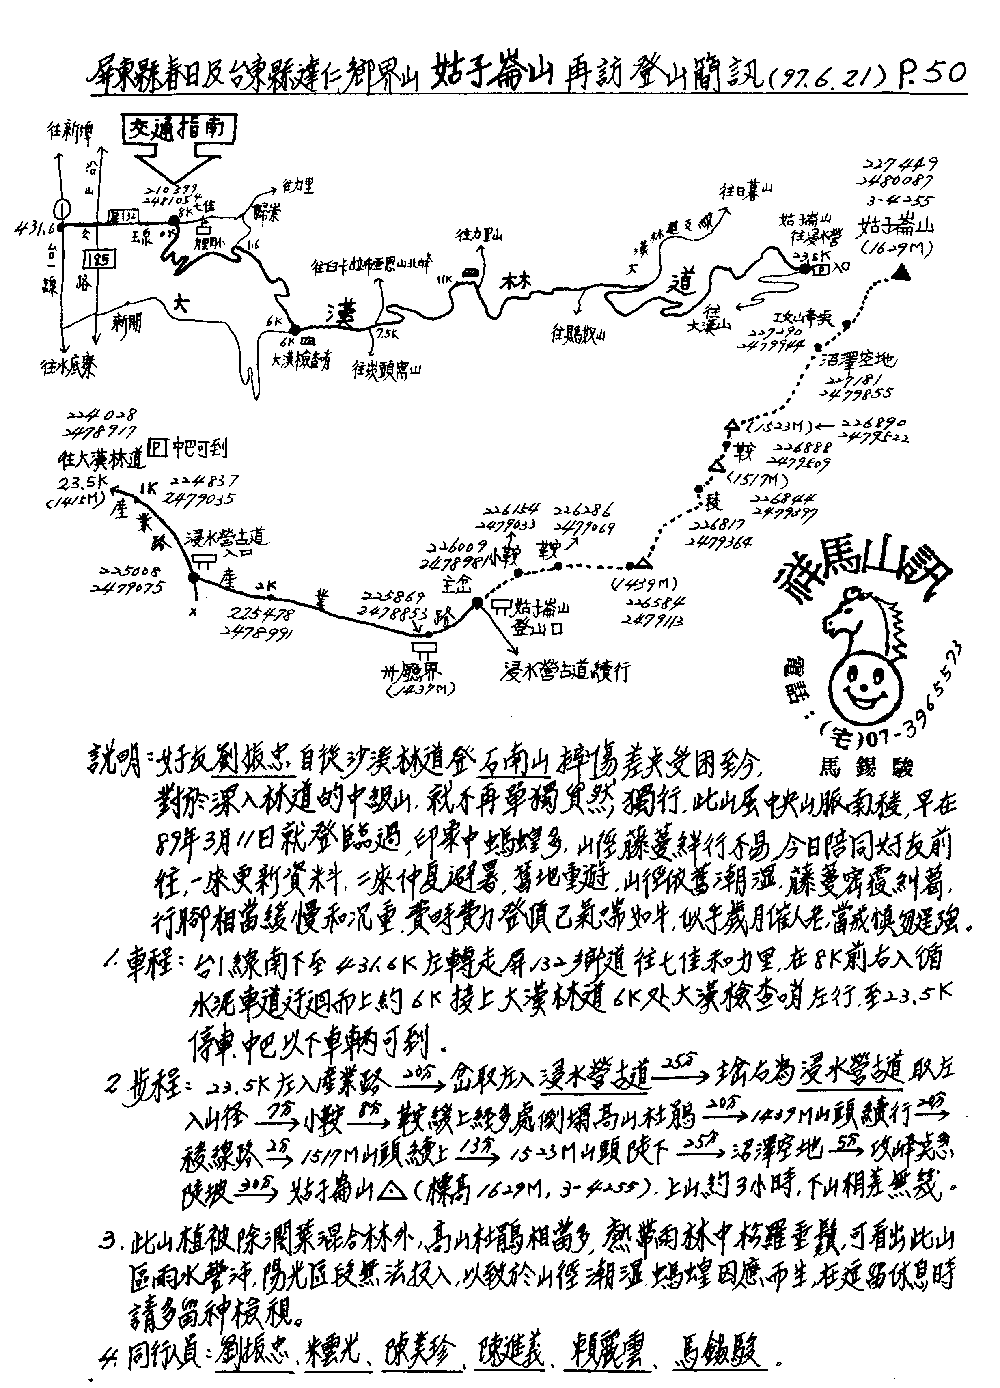 屏東縣春日及台東縣達仁鄉界山 姑子崙山 再訪登山簡訊(97.6.21) P.50
交通指南
往新埤
沿山公路
431.6
台一線
屏132
185
玉泉
0K
210399
2481054
8K
七佳
往力里
歸崇
1.6
新開
往水底寮
大漢林道
6K
6K
大漢檢查哨
7.5K
11K
往力里山
大漢林道支線
往日暮山
往大漢山
姑子崙山
往浸水營
23.5K
P 入口
227449
2480087
3-4255
姑子崙山
(1629M)
攻山牽吳
227290
2479944
沼澤空地
227181
2479855
(1523M)←226890
2479522
鞍
226888
2479509
(1517M)
稜
226844
2479397
226817
2479364
(1439M)
226584
2479113
224028
2478917
往大漢林道
23.5K
(1415M)
P 中巴可到
1K
224837
2479035
產業路
浸水營古道
入口
225008
2479075
產業路
2K
225478
2478991
225869
2478853
州廳界
(1437M)
226009
2478981
主岔
226154
2479033
小鞍
226286
2479069
鞍
姑子崙山
登山口
浸水營古道續行
祥馬山訊
電話：(宅)07-3965573
馬錫駿
說明：好友劉振忠自從沙溪林道登石南山摔傷差點受困至今，
對於深入林道的中級山，就不再單獨貿然獨行，此山屬中央山脈南稜，早在
89年3月11日就登臨過，印象中螞蝗多，山徑藤蔓鮮行不易，今日陪同好友前
往，一來更新資料，二來仲夏避暑，舊地重遊，山徑依舊潮濕，藤蔓密覆糾葛，
行腳相當緩慢和沉重，費時費力登頂已氣喘如牛，似乎歲月催人老，當戒慎勿逞強。
1.車程：台1線南下至431.6K左轉走屏132鄉道往七佳和力里，在8K前右入循
水泥車道迂迴而上約6K接上大漢林道6K處大漢檢查哨左行，至23.5K
停車，中巴以下車輛可到。
2.步程：23.5K左入產業路 20分→ 岔取左入浸水營古道 25分→ 主岔右為浸水營古道取左
入山徑 7分→ 小鞍 8分→ 鞍續上經多處倒塌高山杜鵑 20分→ 1439M山頭續行 20分→
稜線路 2分→ 1517M山頭續上 13分→ 1523M山頭陡下 25分→ 沼澤空地 5分→ 攻峰點急
陡坡 30分→ 姑子崙山△(標高1629M，3-4255)．上山約3小時，下山相差無幾。
3.此山植被除闊葉混合林外，高山杜鵑相當多，熱帶雨林中松蘿垂鬚，可看出此山
區雨水豐沛，陽光區段無法投入，以致於山徑潮濕，螞蝗因應而生，在逗留休息時
請多留神檢視。
4.同行人員：劉振忠、米雲光、陳美珍、陳進義、賴麗雲、馬錫駿．